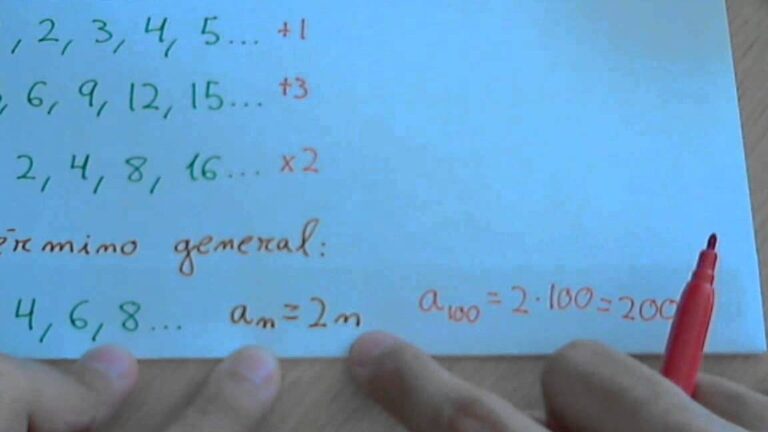 , 2, 3, 4, 5... +1
, 6, 9, 12, 15... +3
2, 4, 8, 16... x2
érmino general:
4, 6, 8... aₙ=2n a₁₀₀=2·100=200